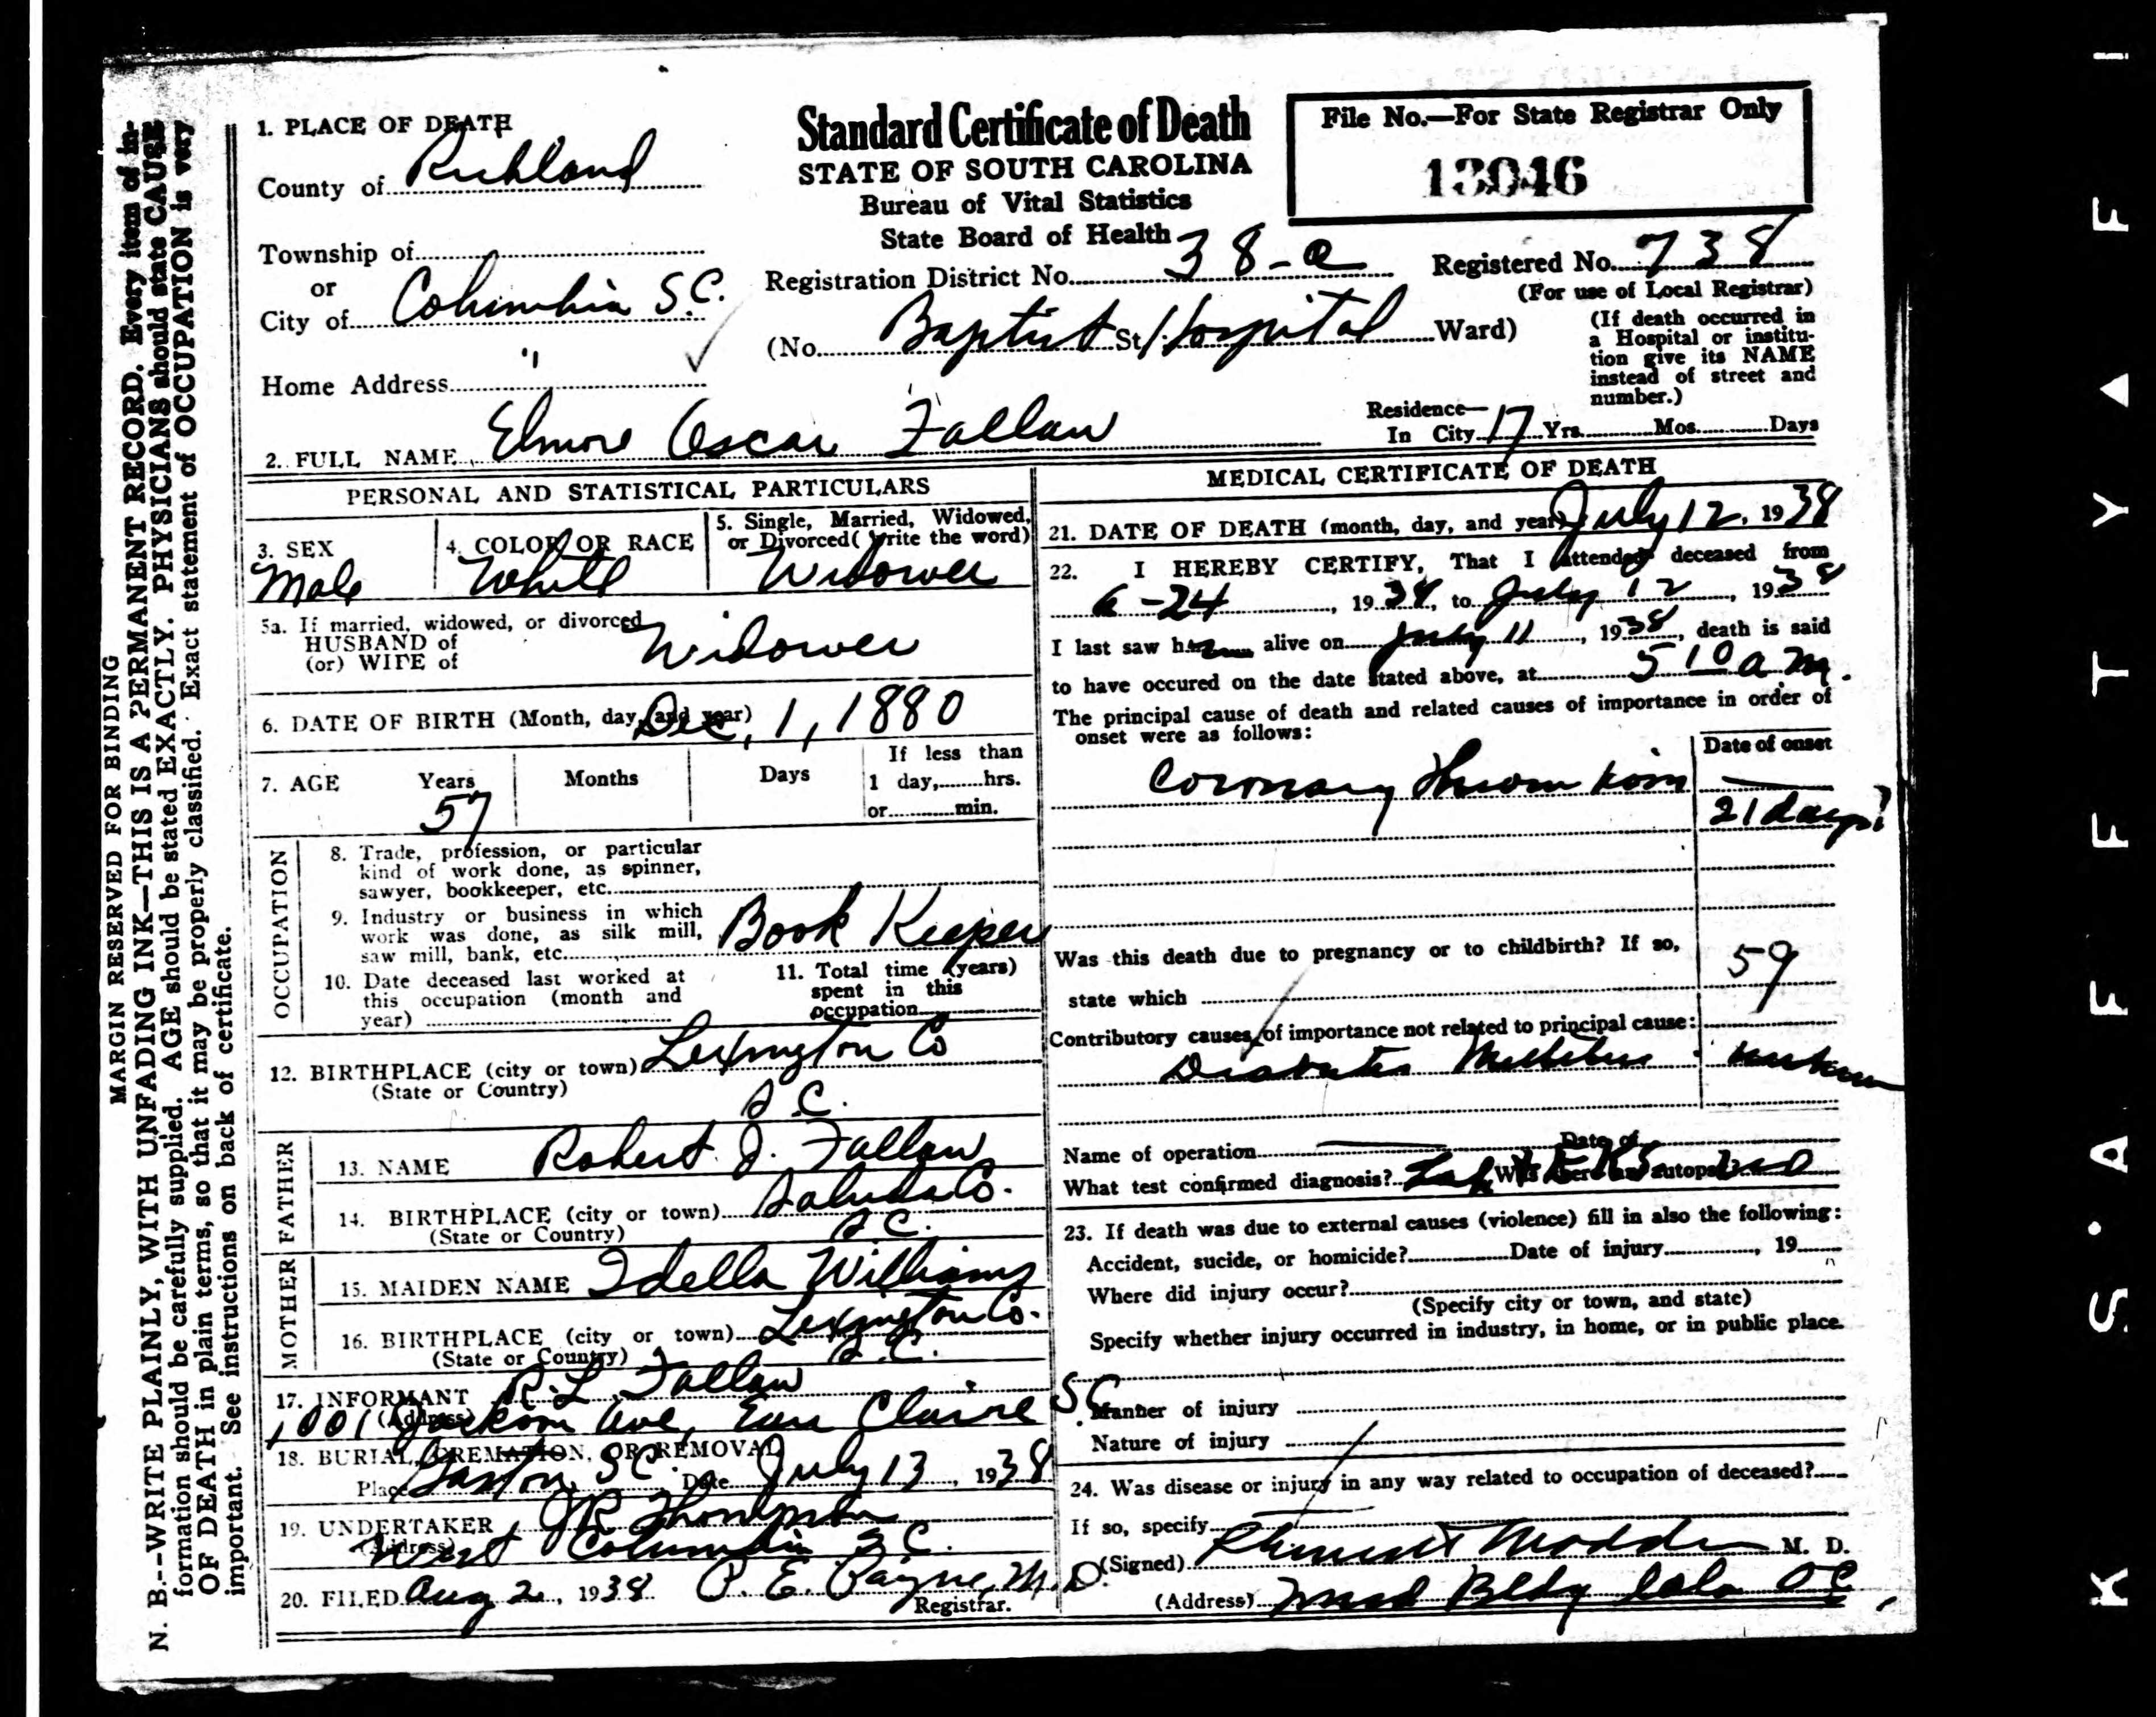 1. PLACE OF DEATH
County of Richland
Township of
or
City of Columbia S.C.
Home Address "
Standard Certificate of Death
STATE OF SOUTH CAROLINA
Bureau of Vital Statistics
State Board of Health
Registration District No. 38-a
(No. Baptist St. Hospital Ward)
File No.—For State Registrar Only
13046
Registered No. 738
(For use of Local Registrar)
(If death occurred in
a Hospital or institu-
tion give its NAME
instead of street and
number.)
Residence—
In City 17 Yrs. Mos. Days
2. FULL NAME Elmore Oscar Fallaw
PERSONAL AND STATISTICAL PARTICULARS
3. SEX
Male
4. COLOR OR RACE
White
5. Single, Married, Widowed,
or Divorced (Write the word)
Widower
5a. If married, widowed, or divorced
HUSBAND of
(or) WIFE of
Widower
6. DATE OF BIRTH (Month, day, and year) Dec, 1, 1880
7. AGE Years Months Days
57
If less than
1 day, hrs.
or min.
OCCUPATION
8. Trade, profession, or particular
kind of work done, as spinner,
sawyer, bookkeeper, etc.
9. Industry or business in which
work was done, as silk mill,
saw mill, bank, etc. Book Keeper
10. Date deceased last worked at
this occupation (month and
year)
11. Total time (years)
spent in this
occupation
12. BIRTHPLACE (city or town) Lexington Co
(State or Country) S.C.
FATHER
13. NAME Robert J. Fallaw
14. BIRTHPLACE (city or town) Saluda Co.
(State or Country) S.C.
MOTHER
15. MAIDEN NAME Idella Williams
16. BIRTHPLACE (city or town) Lexington Co.
(State or Country) S.C.
17. INFORMANT R.L. Fallaw
(Address) 1001 Jackson Ave, Eau Claire SC
18. BURIAL, CREMATION, OR REMOVAL
Place Gaston, S.C. Date July 13, 1938
19. UNDERTAKER JR Thompson
(Address) West Columbia S.C.
20. FILED Aug 2, 1938 P. E. Payne, M.D.
Registrar.
MEDICAL CERTIFICATE OF DEATH
21. DATE OF DEATH (month, day, and year) July 12, 1938
22. I HEREBY CERTIFY, That I attended deceased from
6-24, 1938, to July 12, 1938
I last saw him alive on July 11, 1938, death is said
to have occured on the date stated above, at 5 10 a.m.
The principal cause of death and related causes of importance in order of
onset were as follows:
Date of onset
Coronary Thrombosis
21 days?
Was this death due to pregnancy or to childbirth? If so,
state which
59
Contributory causes of importance not related to principal cause:
Diabetes Mellitus
Name of operation Date of
What test confirmed diagnosis? Lab & EKG Was there an autopsy? no
23. If death was due to external causes (violence) fill in also the following:
Accident, sucide, or homicide? Date of injury , 19
Where did injury occur?
(Specify city or town, and state)
Specify whether injury occurred in industry, in home, or in public place.
Manner of injury
Nature of injury
24. Was disease or injury in any way related to occupation of deceased?
If so, specify
(Signed) Madden M. D.
(Address) Bldg Cola SC
MARGIN RESERVED FOR BINDING
N. B.--WRITE PLAINLY, WITH UNFADING INK—THIS IS A PERMANENT RECORD. Every item of in-
formation should be carefully supplied. AGE should be stated EXACTLY. PHYSICIANS should state CAUSE
OF DEATH in plain terms, so that it may be properly classified. Exact statement of OCCUPATION is very
important. See instructions on back of certificate.
K S'AFETY